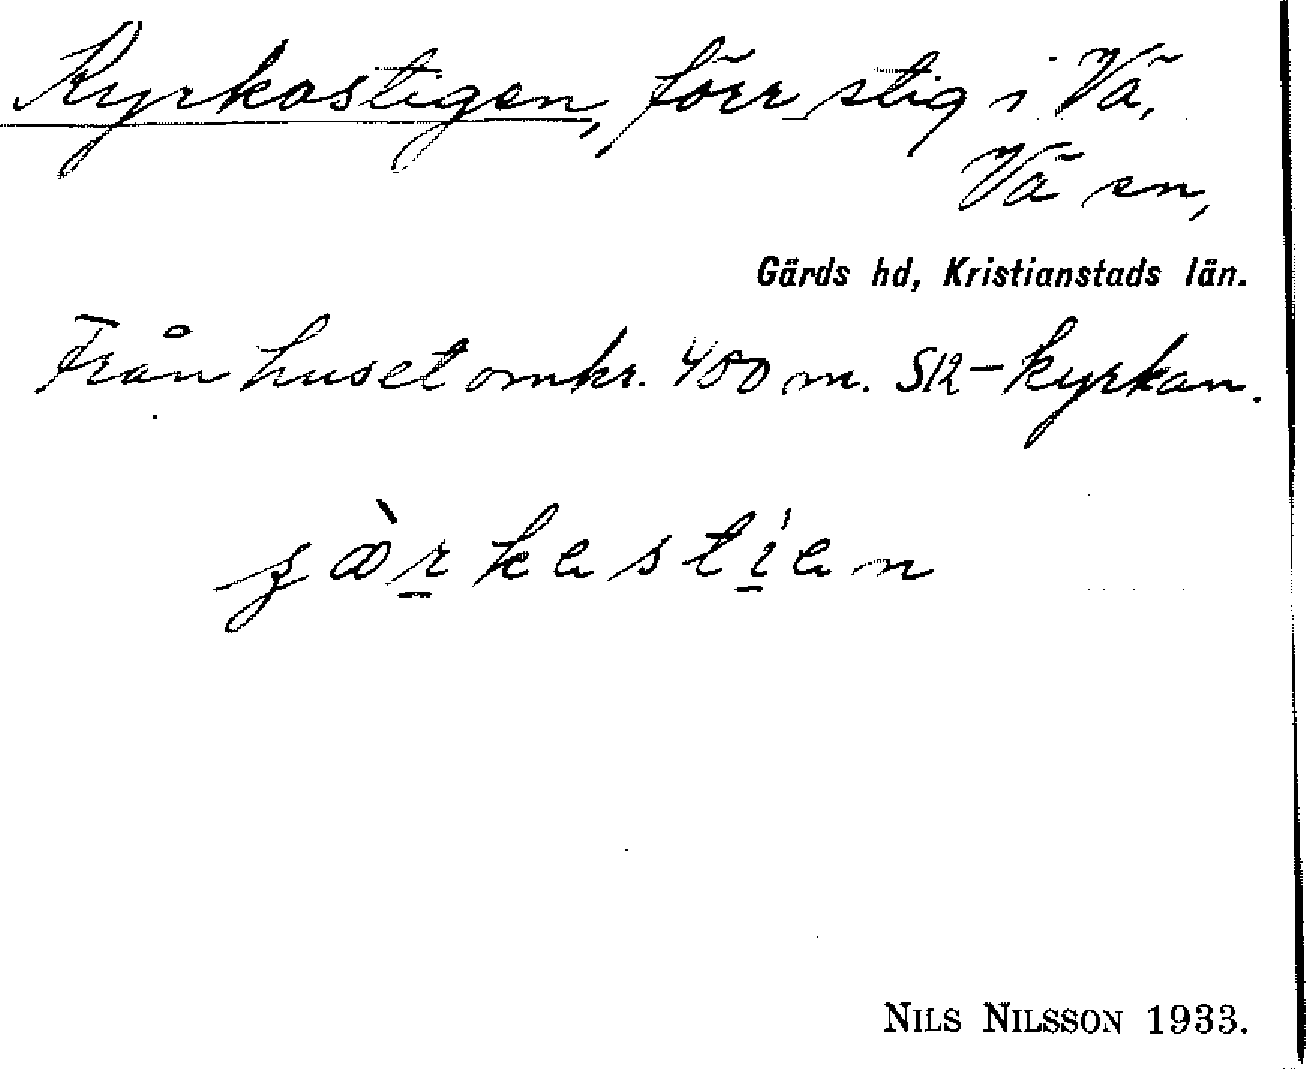 Kyrkastigen, förr stig i Vä,
Vä sn,
Gärds hd, Kristianstads län.
Från huset omkr. 400 m. S12-kyrkan.
NILS NILSSON 1933.